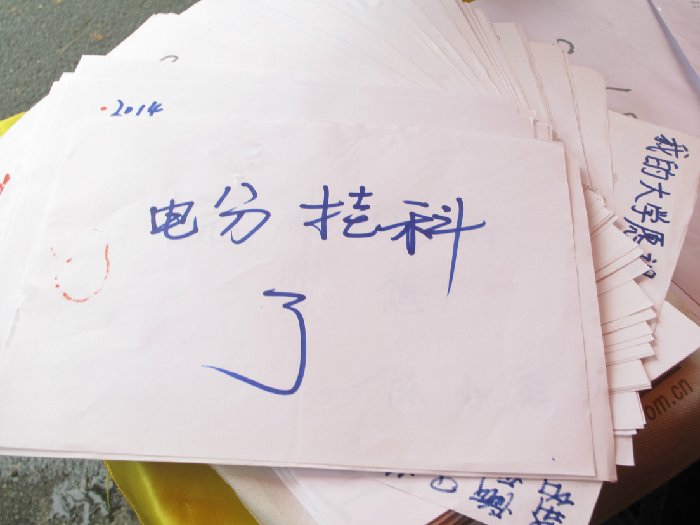 2014
电分挂科
了
我的大学愿
om.cn